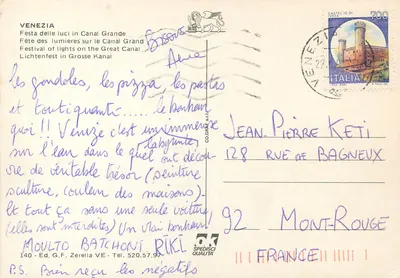 VENEZIA
Festa delle luci in Canal Grande
Fête des lumières sur le Canal Grand
Festival of lights on the Great Canal
Lichtenfest in Grosse Kanal
les gondoles, les pizza, les pastes
et touti quanti..... le bonheur
quoi!! Venize c'est un immense
labyrinthe
sur l'eau dans le quel ont décou-
vre de véritable trésor (peinture
sculture, couleur des maisons).
Et tout ça sans une seule voiture
(elles sont interdites) Un vrai bonheur!
MOULTO BATCHONI RIKI.
140 - Ed. G.F. Zerella VE - Tel. 520.57
P.S. Bien reçu les négatifs
OK
SPEDISCI
QUALITÀ
200
ITALIA
VENEZIA
JEAN-PIERRE KETI
128 RUE DE BAGNEUX
92 MONT-ROUGE
FRANCE